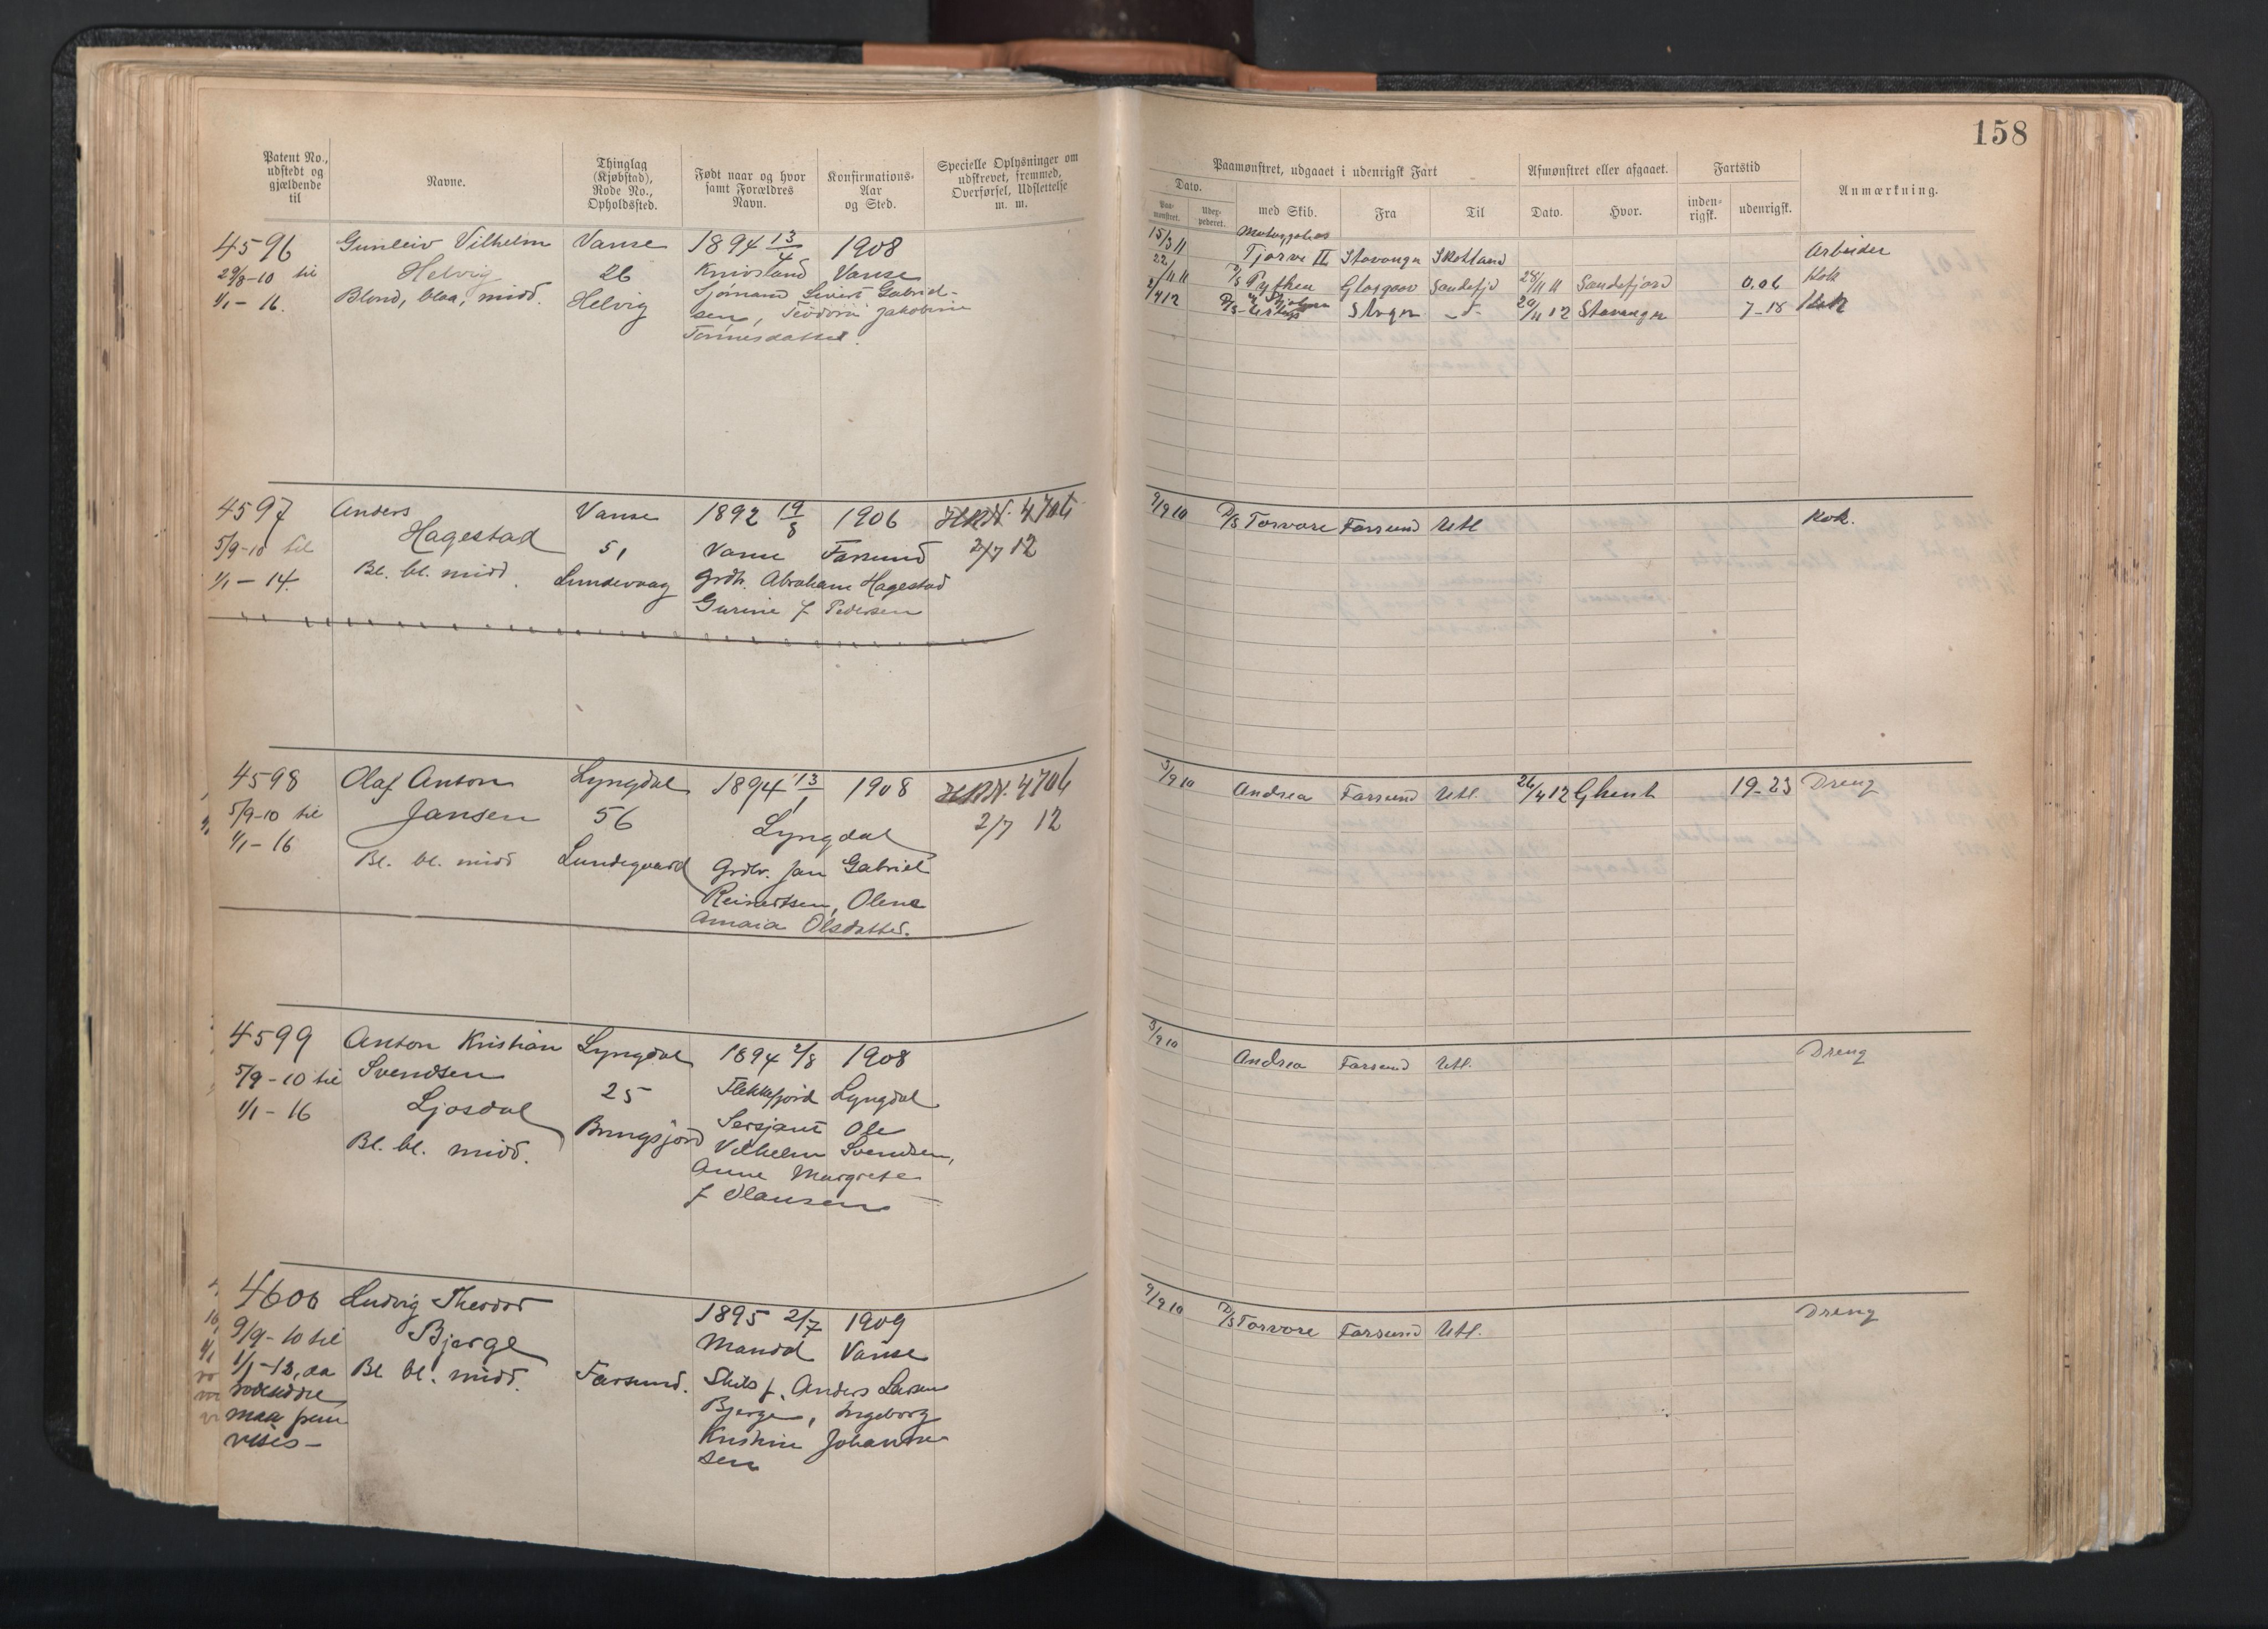 158
Patent No., udstedt og gjældende til
Navne.
Thinglag (Kjøbstad), Rode No., Opholdssted.
Født naar og hvor samt Forældres Navn.
Konfirmations-Aar og Sted.
Specielle Oplysninger om udskrevet, fremmed, Overførsel, Udslettelse m. m.
Paamønstret, udgaaet i udenrigsk Fart
Afmønstret eller afgaaet.
Fartstid
Anmærkning.
Dato.
Paa-mønstret.
med Skib.
Fra
Til
Dato.
Hvor.
inden-rigsk.
udenrigsk.
4596 Gunleiv Vilhelm Vanse 1894 13/4 1908
29/8-10 til Helvig 26 Knivsland Vanse
1/1-16. Blond, blaa, midd. Helvig Sjømand Sivert Gabriel-
sen, Teodora Jakobine
Tønnesdatter.
15/3 11 Tjorve II Stavanger Skotland Arbeider
22/11 11 D/S Pythea Glasgow Sandefjd 28/11 11 Sandefjord 0.06 Kok
2/4 12 D/S Stvgr -"- 20/11 12 Stavanger 7-18 Kok
4597 Anders Vanse 1892 19/8 1906 4704
5/9-10 til Hagestad 51 Vanse Farsund 2/7 12
1/1-14. Bl. bl. midd. Lundevaag Grdr. Abraham Hagestad
Gurine f. Pedersen
9/9 10 D/S Torvore Farsund Utl Kok.
4598 Olaf Anton Lyngdal 1894 13/1 1908 4706
5/9-10 til Jansen 56 Lyngdal 2/7 12
1/1-16 Bl. bl. midd Lundegaard Grdbr. Jan Gabriel
Reinertsen, Olene
Amaia Olsdatter.
3/9 10 Andrea Farsund Utl. 26/4 12 Ghent 19-23 Dreng
4599 Anton Kristian Lyngdal 1894 2/8 1908
5/9-10 til Svendsen 25 Flekkefjord Lyngdal
1/1-16 Ljosdal Sersjant Ole
Bl. bl. midd. Vilhelm Svendsen,
Anne Margrete
f. Olausen
3/9 10 Andrea Farsund Utl. Dreng
4600 Ludvig Theodor 1895 2/7 1909
9/9-10 til Bjerge Mandal Vanse
1/1-13, da Bl bl. midd. Farsund. Skibsf. Anders Larsen
Bjerge, Ingeborg
maa frem Kristine Johanne-
vises- sen
9/9 10 D/S Torvore Farsund Utl. Dreng